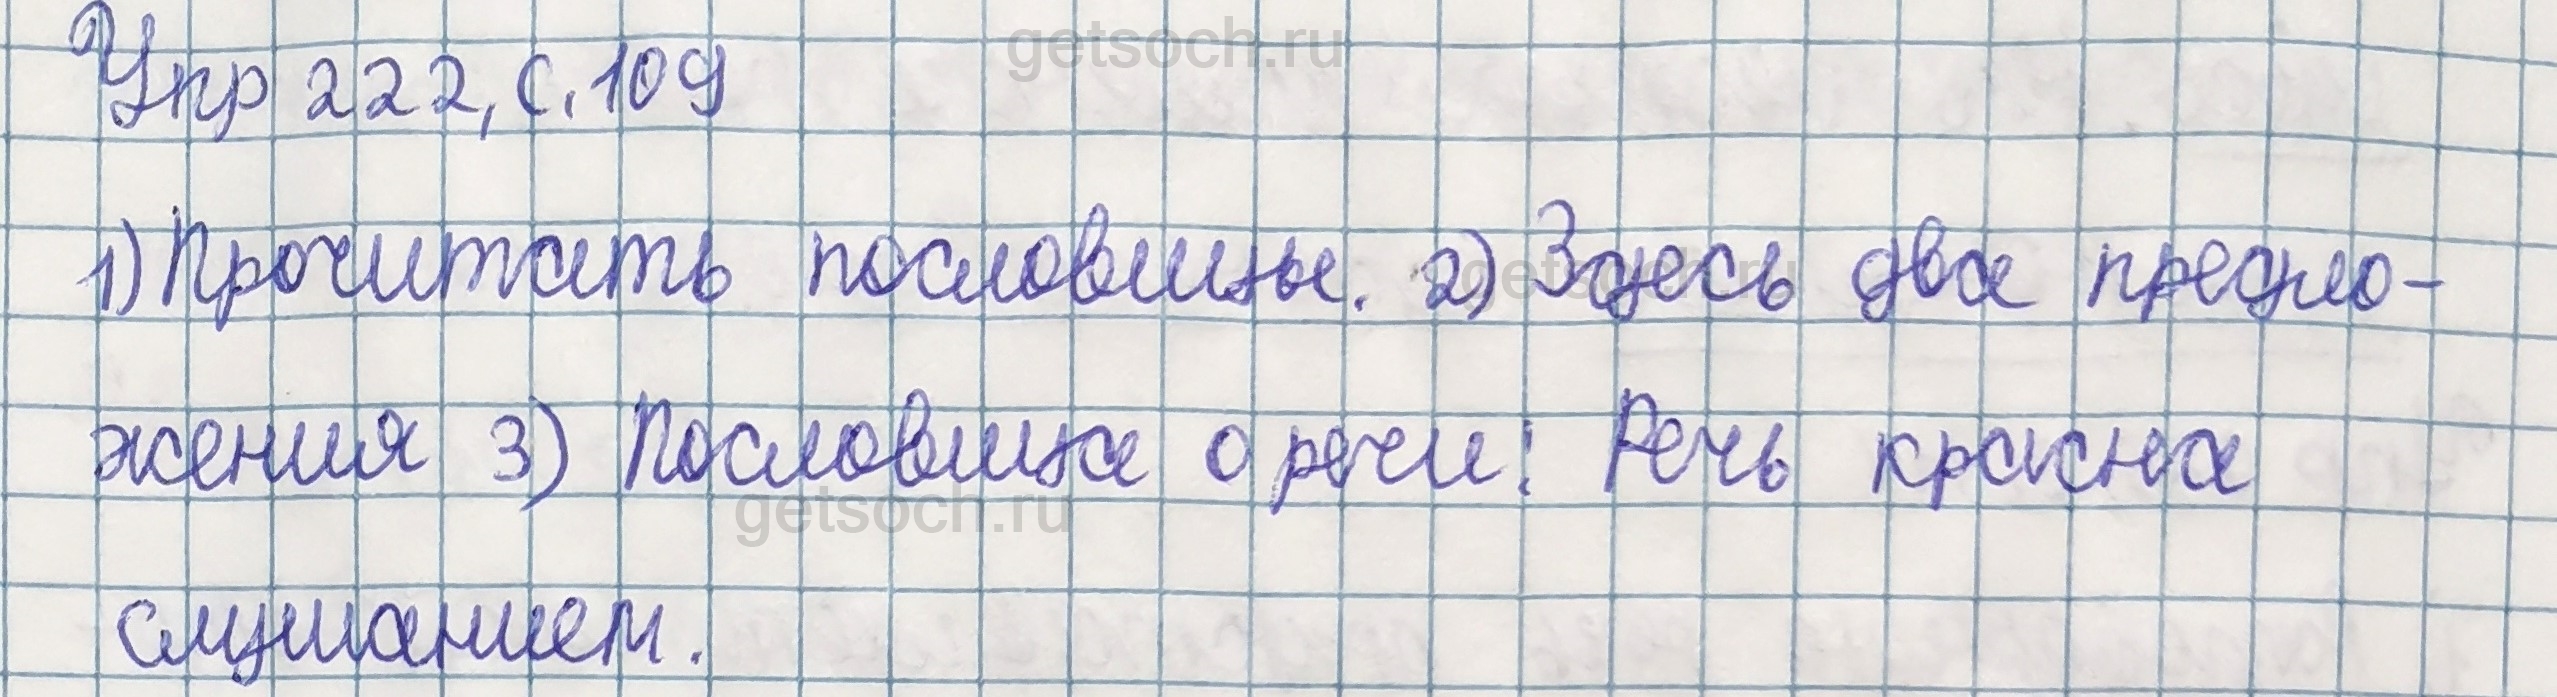 getsoch.ru
Упр 222, с. 109
1) Прочитать пословицы. 2) Здесь два предло-
getsoch.ru
жения 3) Пословица о речи: Речь красна
getsoch.ru
слушанием.